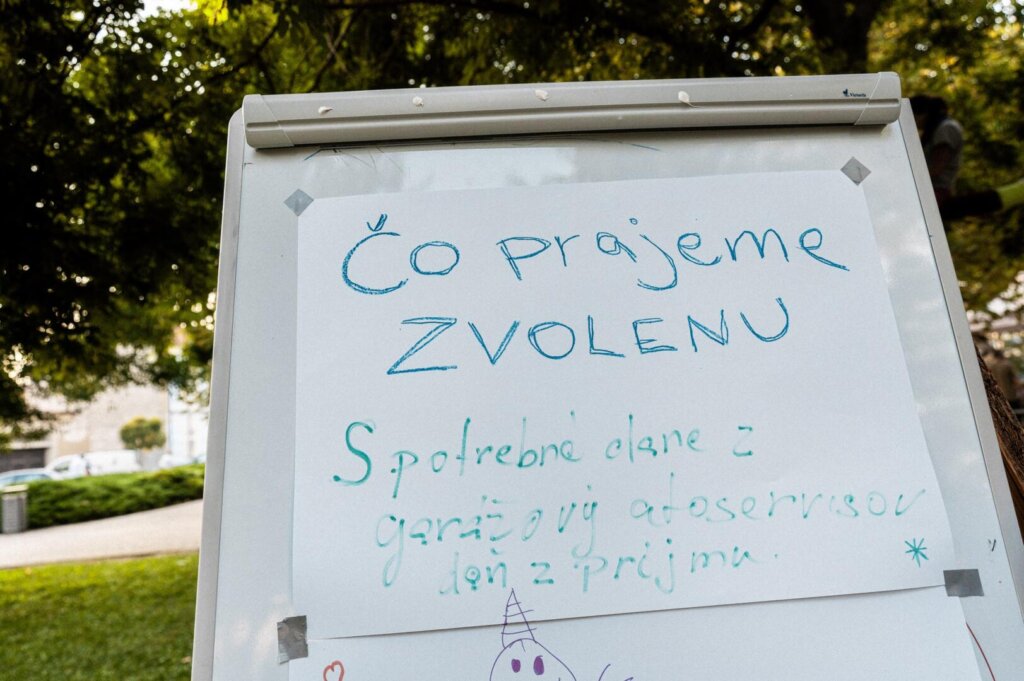 Čo prajeme
ZVOLENU
Spotrebné dane z
garážový atoservisov
daň z príjmu.